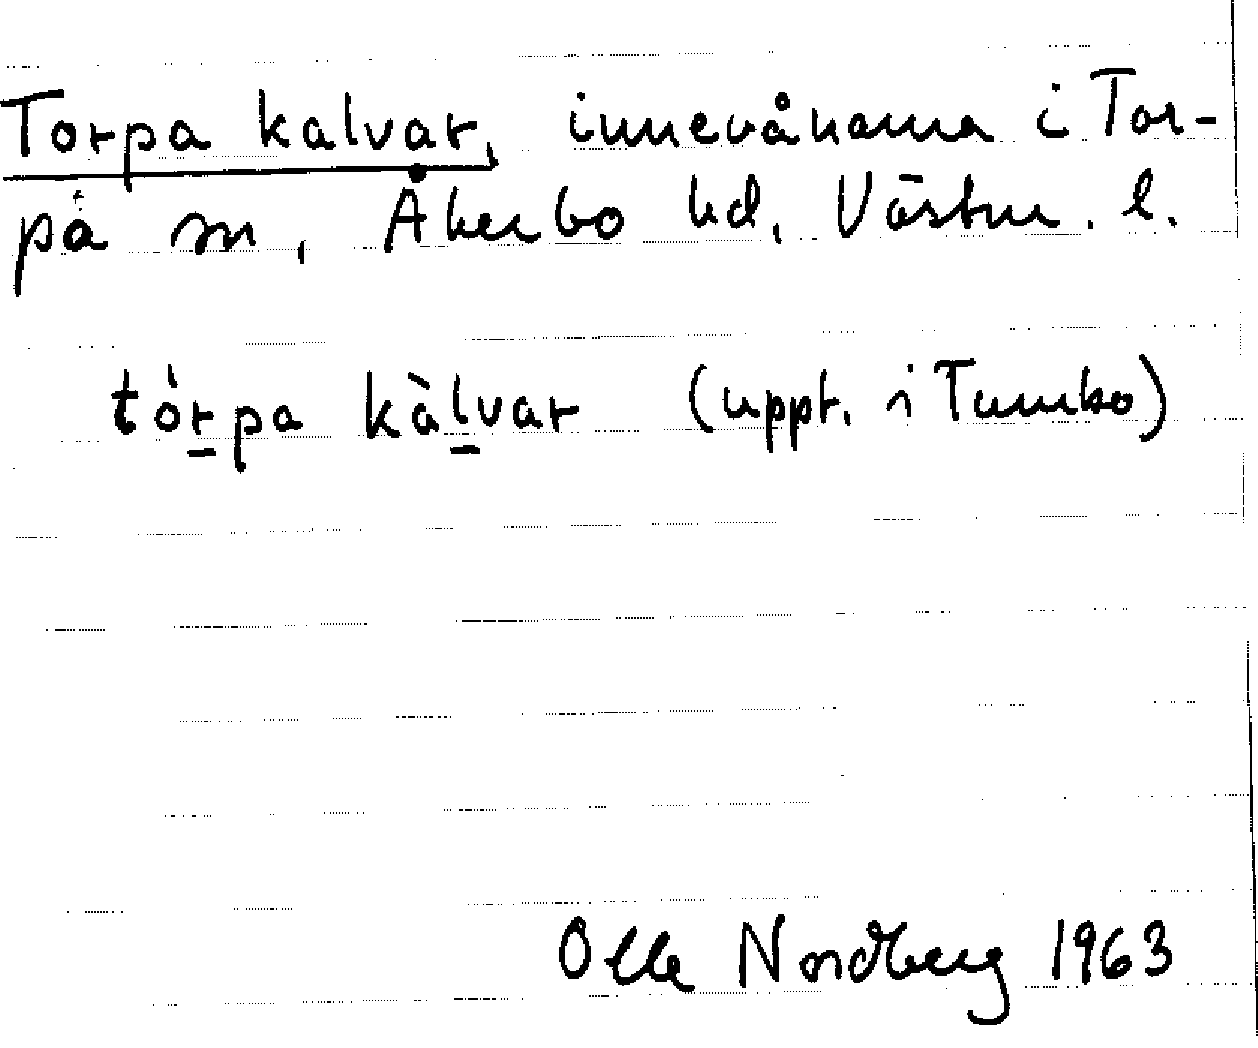 Torpa kalvar, innevånarna i Tor-
pa sn, Åkerbo hd, Västm. l.
tòrpa kàlvar (uppt. i Tumbo)
Olle Nordberg 1963